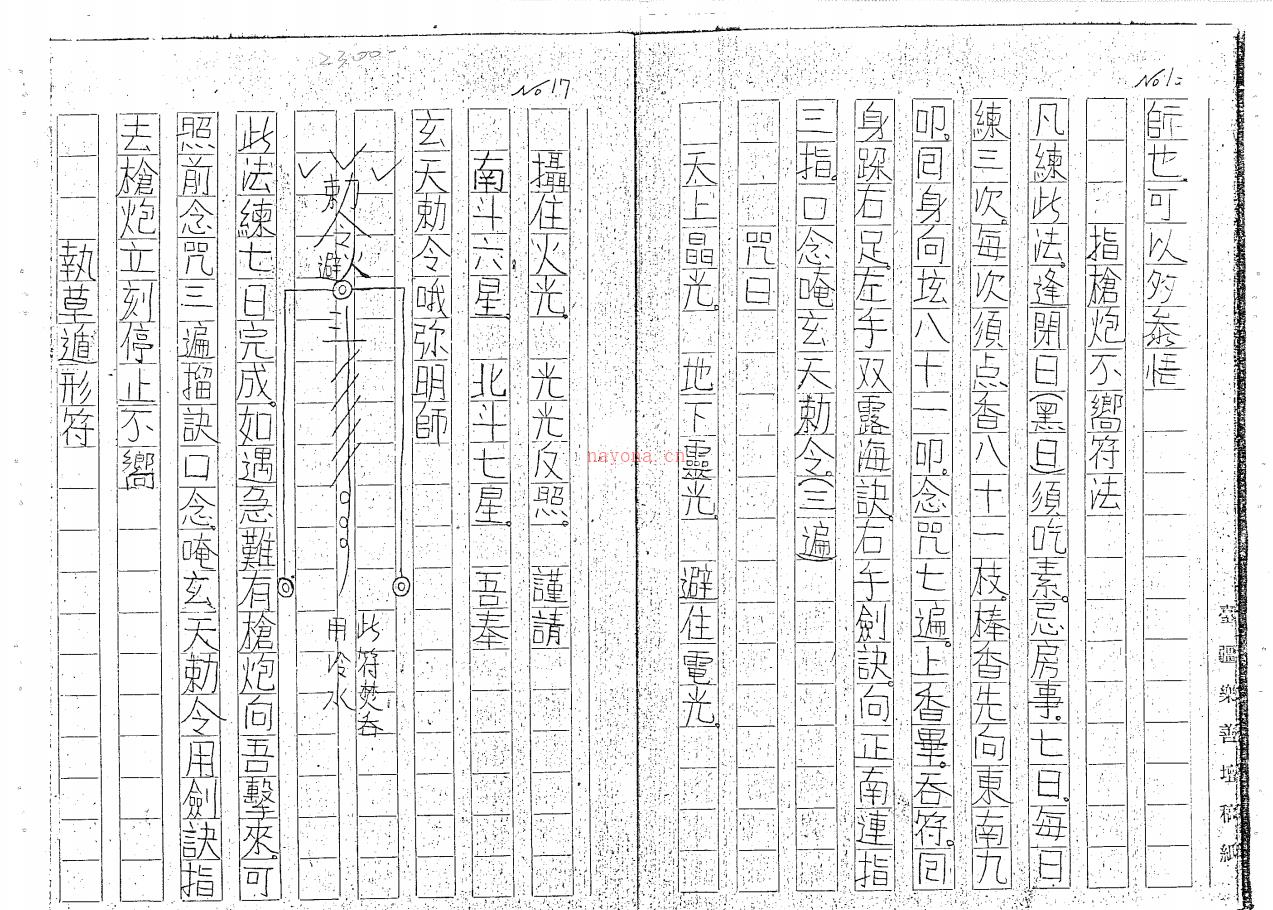 師也.可以多叅悟
指槍炮不嚮符法
凡練此法.逢閉日(黑日)須吃素.忌房事.七日.每日
練三次.每次須点香八十一枝.棒香先向東南九
叩.囘身向坟八十一叩.念咒七遍.上香畢.吞符.囘
身跺右足.左手双露海訣.右手劍訣.向正南連指
三指.口念唵玄天勅令.(三遍)
咒曰
天上晶光. 地下靈光. 避住電光.
No 17
攝住火光. 光光反照. 謹請
南斗六星. 北斗七星. 吾奉
玄天勅令哦弥明師
勅令
避火
此符焚吞
用冷水
此法練七日完成.如遇急難有槍炮向吾擊來.可
照前念咒三遍.搯訣口念.唵玄天勅令用劍訣指
去槍炮立刻停止不嚮
執草遁形符
臺疆樂善壇稿紙
2300-
nayona.cn